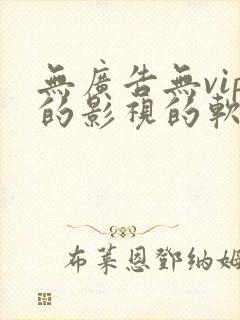 無廣告無vip
的影視的軟
布萊恩鄧納姆